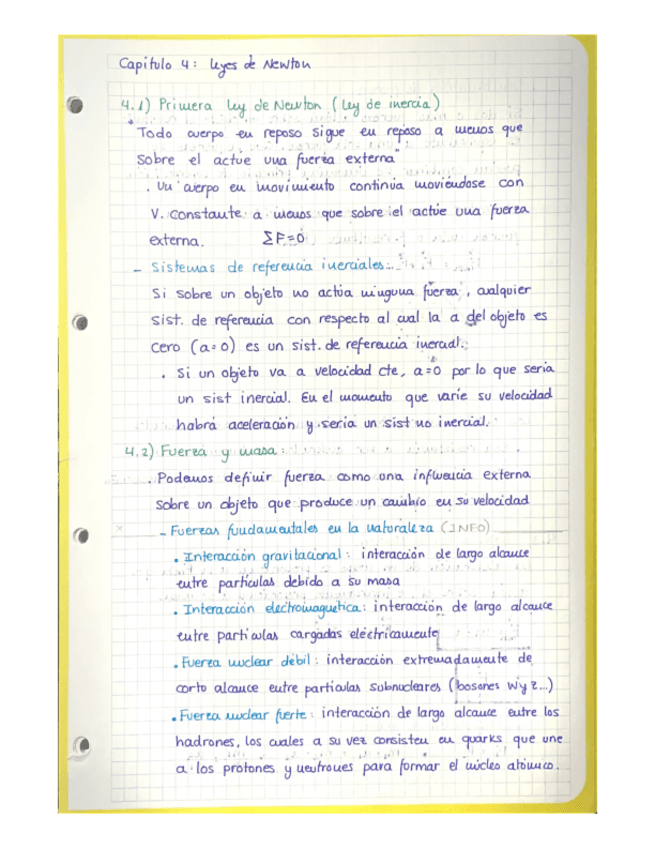 Capítulo 4: Leyes de Newton
4.1) Primera ley de Newton (ley de inercia)
"Todo cuerpo en reposo sigue en reposo a menos que
sobre el actue una fuerza externa"
. Un cuerpo en movimiento continua moviendose con
V. constante a menos que sobre el actúe una fuerza
externa. ΣF=0
- Sistemas de referencia inerciales:
Si sobre un objeto no actúa ninguna fuerza, cualquier
sist. de referencia con respecto al cual la a del objeto es
cero (a=0) es un sist. de referencia inercial.
. Si un objeto va a velocidad cte, a=0 por lo que sería
un sist inercial. En el momento que varíe su velocidad
habrá aceleración y sería un sist no inercial.
4.2) Fuerza y masa:
. Podemos definir fuerza como una influencia externa
sobre un objeto que produce un cambio en su velocidad
- Fuerzas fundamentales en la naturaleza (INFO)
. Interacción gravitacional: interacción de largo alcance
entre partículas debido a su masa
. Interacción electromagnética: interacción de largo alcance
entre partículas cargadas eléctricamente
. Fuerza nuclear débil: interacción extremadamente de
corto alcance entre partículas subnucleares (bosones W y Z...)
. Fuerza nuclear fuerte: interacción de largo alcance entre los
hadrones, los cuales a su vez consisten en quarks que une
a los protones y neutrones para formar el núcleo atómico.